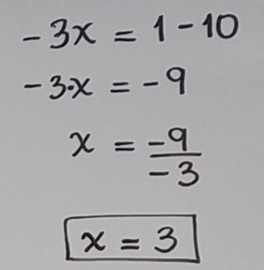 -3x = 1 - 10
-3·x = -9
x = -9/-3
x = 3